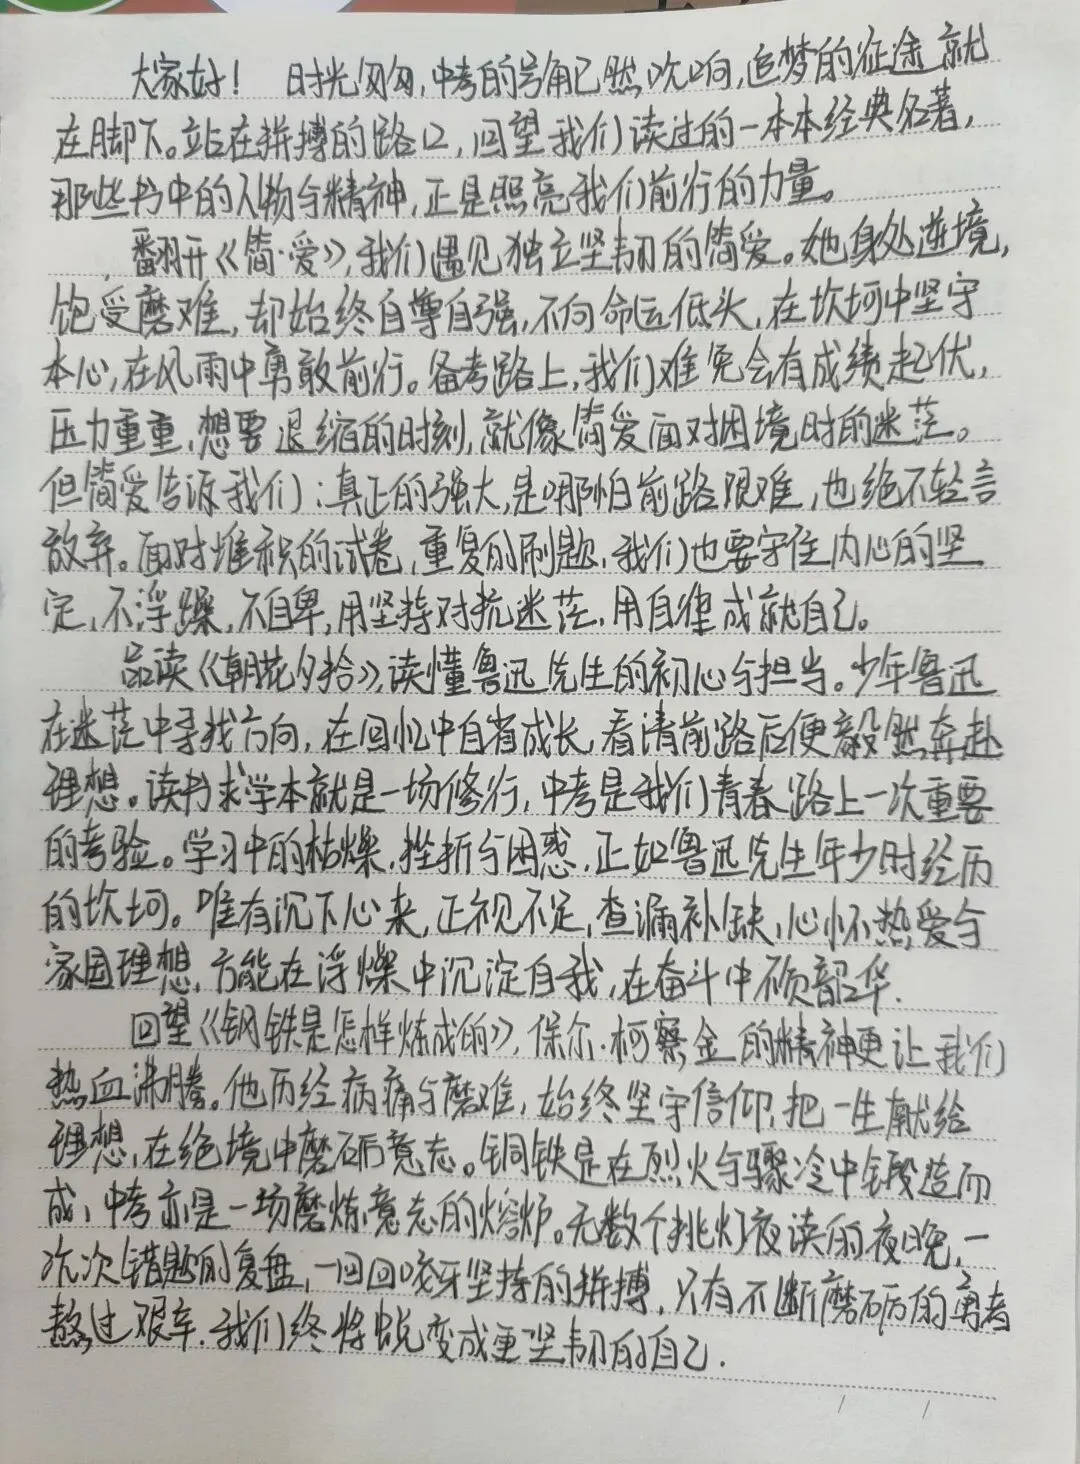 大家好！ 时光匆匆,中考的号角已然吹响,追梦的征途就
在脚下。站在拼搏的路口,回望我们读过的一本本经典名著,
那些书中的人物与精神,正是照亮我们前行的力量。
翻开《简·爱》,我们遇见独立坚韧的简爱。她身处逆境,
饱受磨难,却始终自尊自强,不向命运低头,在坎坷中坚守
本心,在风雨中勇敢前行。备考路上,我们难免会有成绩起伏,
压力重重,想要退缩的时刻,就像简爱面对困境时的迷茫。
但简爱告诉我们:真正的强大,是哪怕前路艰难,也绝不轻言
放弃。面对堆积的试卷,重复的刷题,我们也要守住内心的坚
定,不浮躁,不自卑,用坚持对抗迷茫,用自律成就自己。
品读《朝花夕拾》,读懂鲁迅先生的初心与担当。少年鲁迅
在迷茫中寻找方向,在回忆中自省成长,看清前路后便毅然奔赴
理想。读书求学本就是一场修行,中考是我们青春路上一次重要
的考验。学习中的枯燥,挫折与困惑,正如鲁迅先生年少时经历
的坎坷。唯有沉下心来,正视不足,查漏补缺,心怀热爱与
家国理想,方能在浮燥中沉淀自我,在奋斗中不负韶华.
回望《钢铁是怎样炼成的》,保尔·柯察金的精神更让我们
热血沸腾。他历经病痛与磨难,始终坚守信仰,把一生献给
理想,在绝境中磨砺意志。钢铁是在烈火与骤冷中锻造而
成,中考亦是一场磨炼意志的熔炉。无数个挑灯夜读的夜晚,一
次次错题的复盘,一回回咬牙坚持的拼搏,只有不断磨砺的勇者
熬过艰辛.我们终将蜕变成更坚韧的自己.